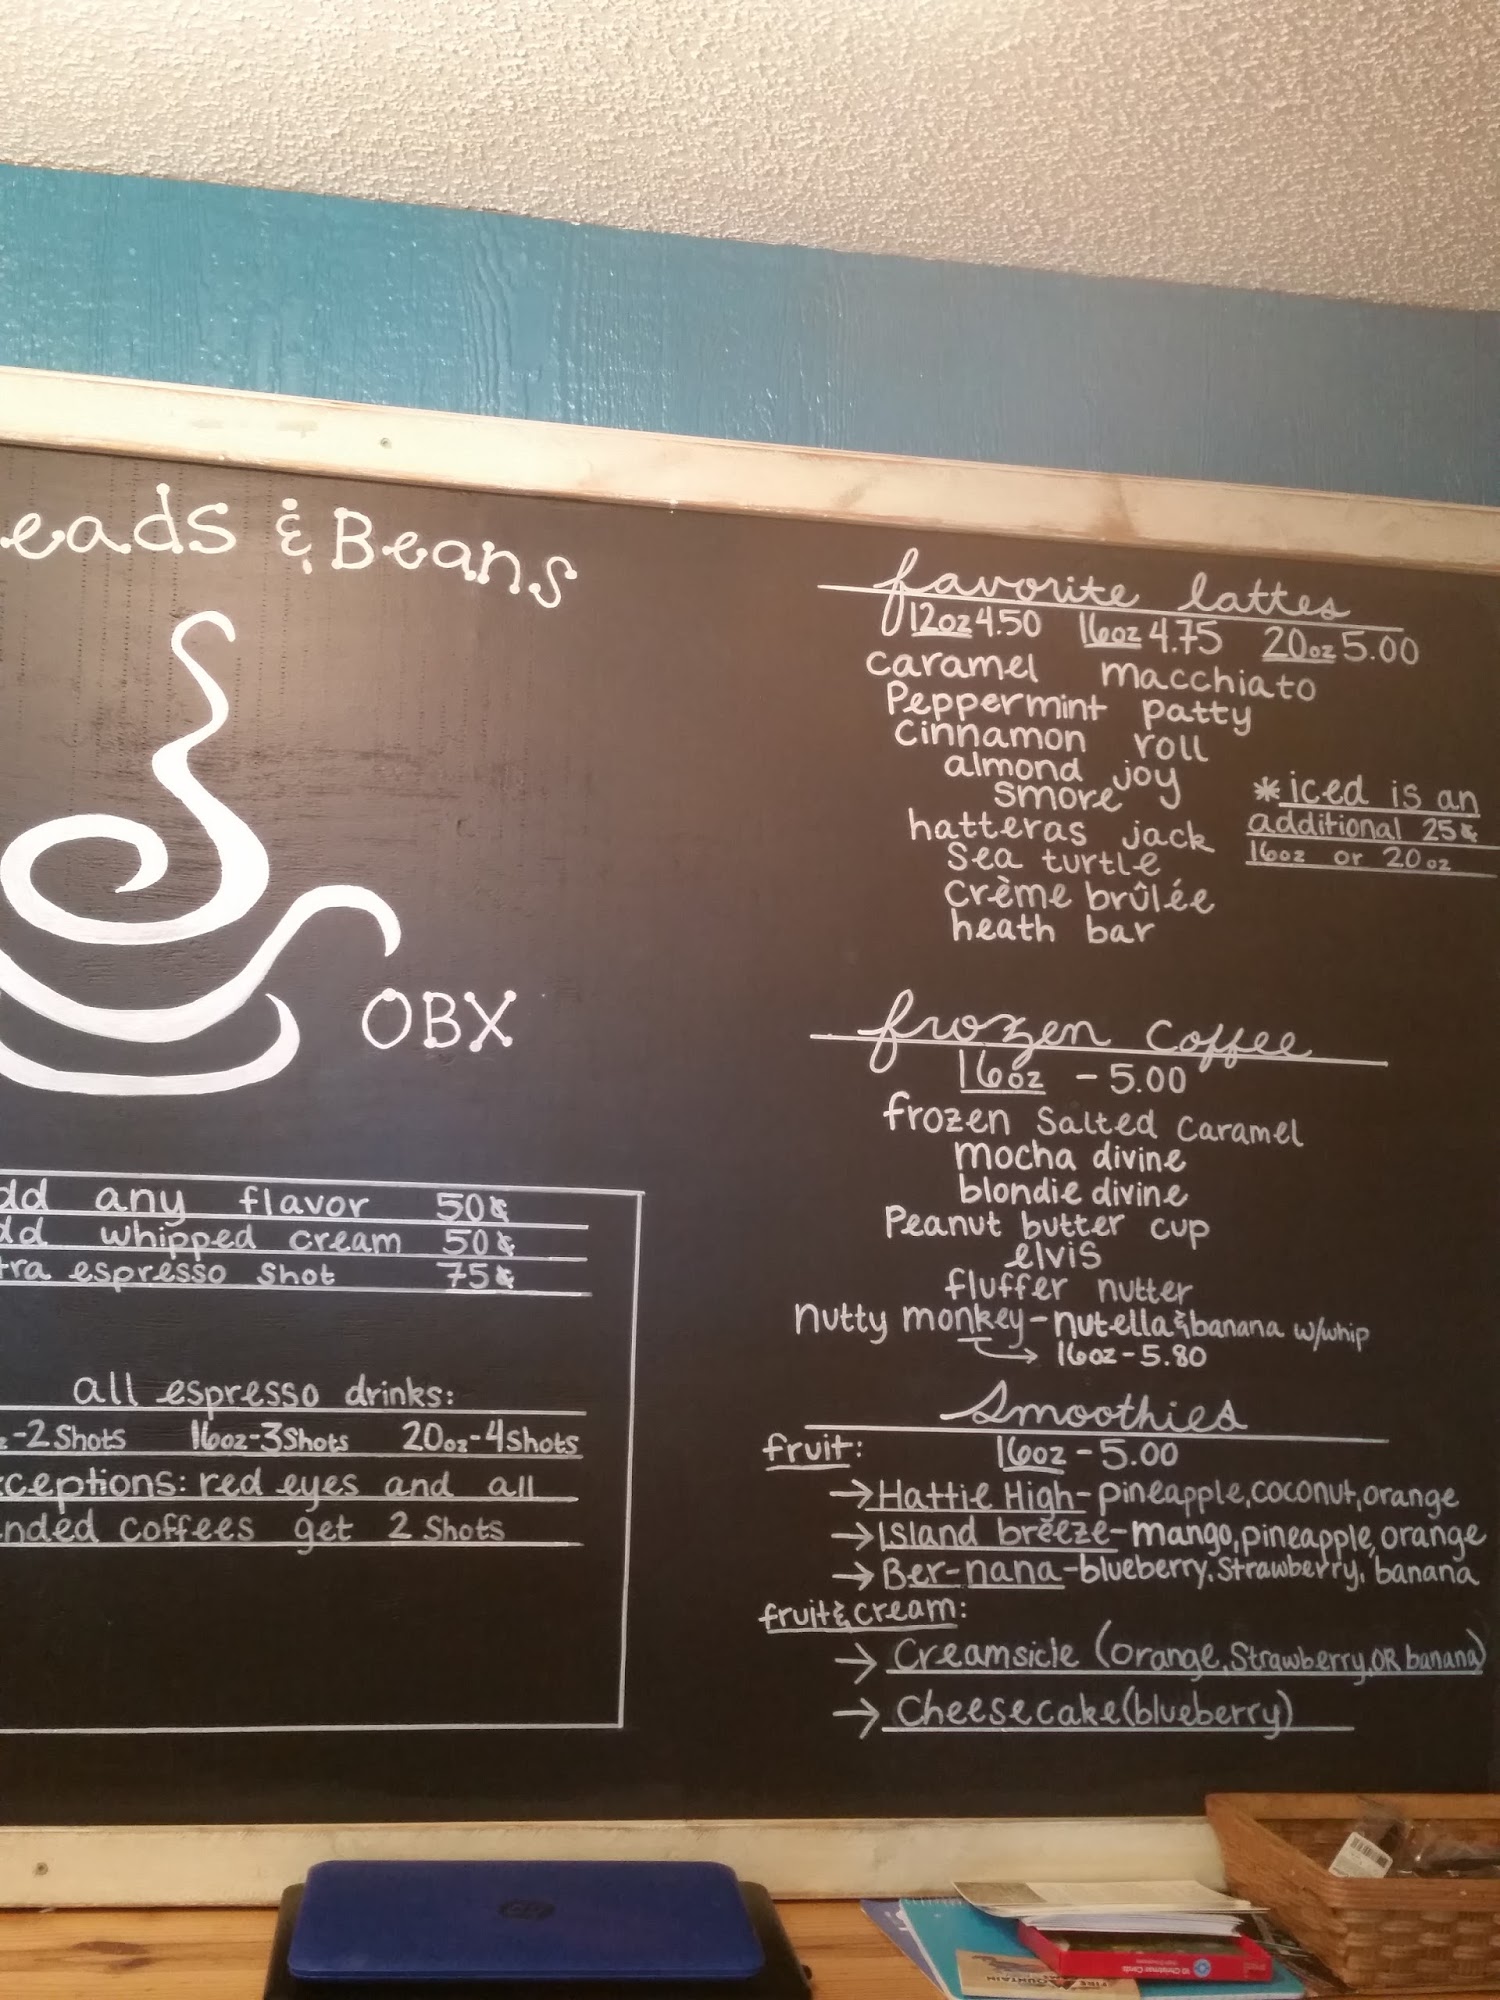 eads & Beans
OBX
dd any flavor 50¢
dd whipped cream 50¢
tra espresso shot 75¢
all espresso drinks:
z-2 Shots 16oz-3Shots 20oz-4shots
ceptions: red eyes and all
nded coffees get 2 Shots
favorite lattes
12oz 4.50 16oz 4.75 20oz 5.00
caramel macchiato
Peppermint patty
cinnamon roll
almond joy
smore
hatteras jack
sea turtle
crème brûlée
heath bar
*iced is an
additional 25¢
16oz or 20oz
frozen coffee
16oz - 5.00
frozen salted caramel
mocha divine
blondie divine
Peanut butter cup
elvis
fluffer nutter
nutty monkey-nutella & banana w/whip
16oz-5.80
Smoothies
fruit: 16oz-5.00
→Hattie High-pineapple,coconut,orange
→Island breeze-mango,pineapple,orange
→Ber-nana-blueberry,strawberry,banana
fruit & cream:
→ Creamsicle (orange,strawberry,OR banana)
→ Cheesecake(blueberry)
hp
10 Christmas Cards
MOUNTAIN